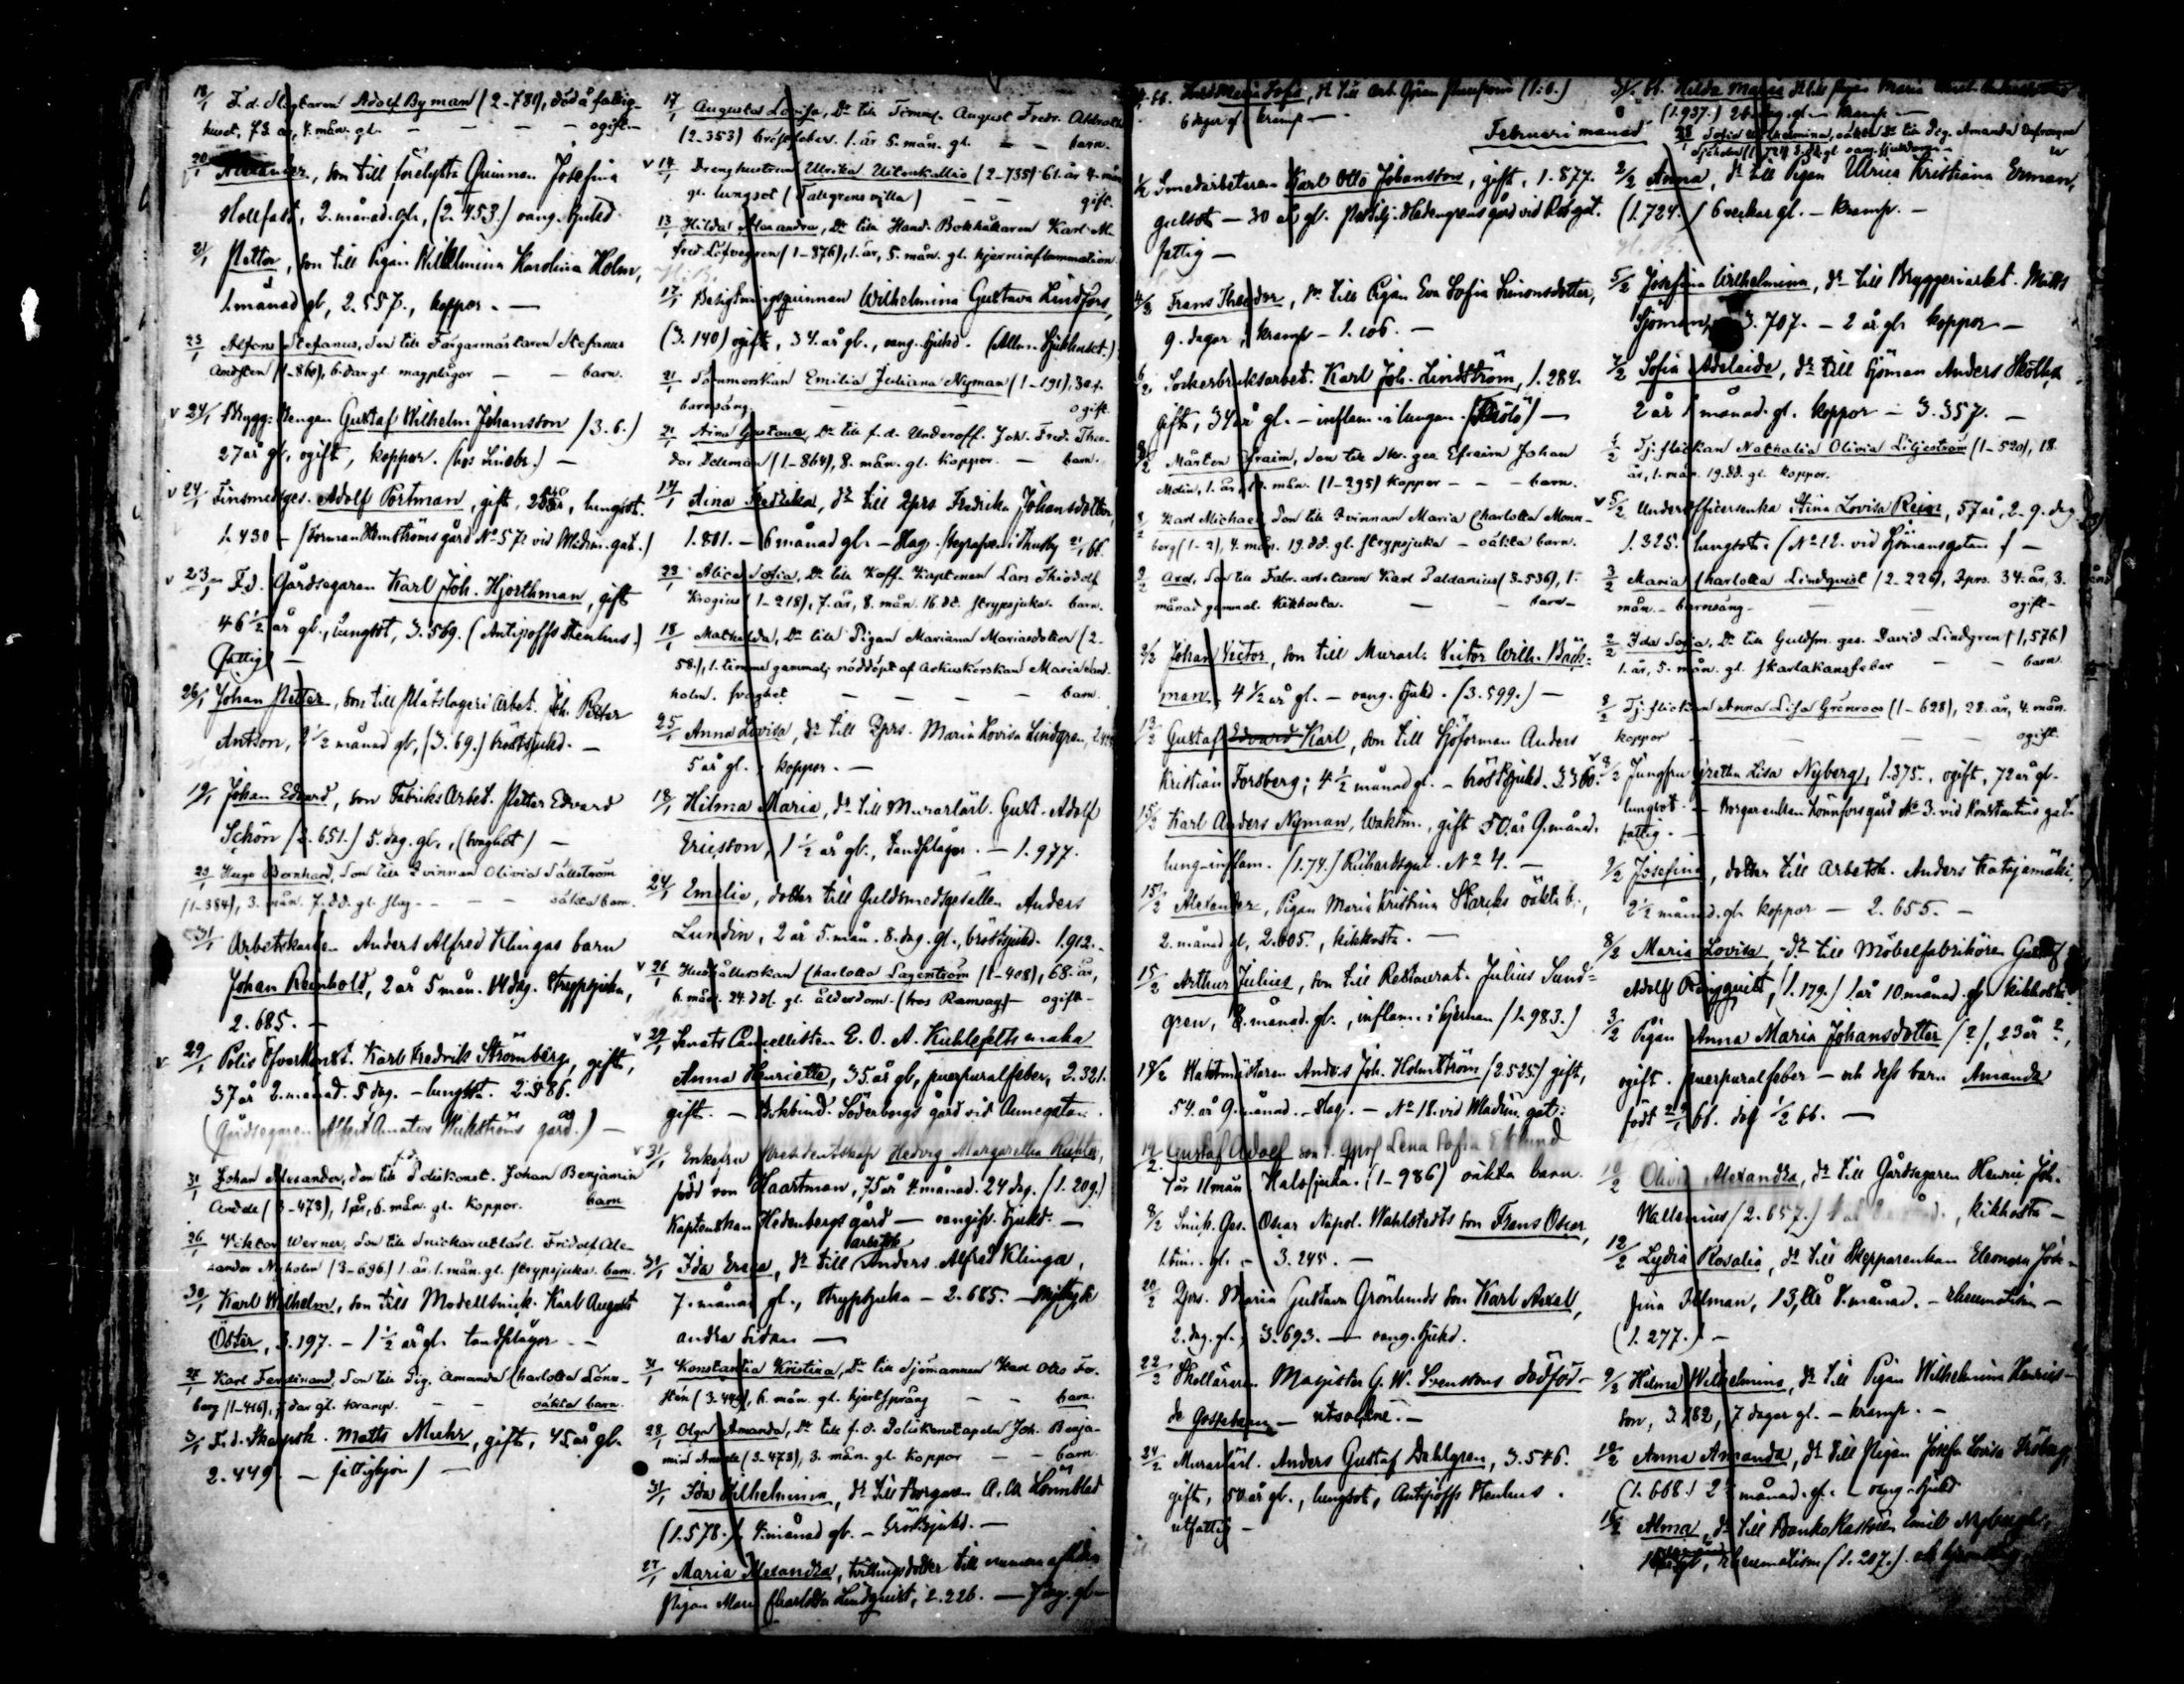 18/1 F.d. Adolf Byman (2-781), död å fattig-
huset, 73. år, 4. mån. gl. — — — ogift.—
20/1 Alexander, son till förelysta Qvinnan Josefina
Hollfast, 2. månad. gl., (2. 453.) oang. sjukd.
21/1 Petter, son till Pigan Wilhelmina Karolina Holm,
1. månad gl, 2. 557., koppor. —
23/1 Alfons Stefanus, son till Färgarmästaren Stefanus
(1-860), 6. dar gl. magplågor — — barn.
v 24/1 Brygg. drengen Gustaf Wilhelm Johansson (3. 6.)
27 år gl. ogift, koppor. —
v 24/1 Finsmedsges. Adolf Portman, gift, lungsot.
1. 430 — gård No 57. vid Wladim. gat.)
v 23/1 F.d. Gårdsegaren Karl Joh. Hjorthman, gift
46 1/2 år gl., lungsot, 3. 569. (Antipoffs stenhus.)
fattig —
26/1 Johan Petter, son till Plåtslageri Arbet. Joh. Petter
Antson, 2 1/2 månad gl, (3. 69.) bröstsjukd. —
19/1 Johan Edvard, son Fabriks Arbet. Petter Edvard
Schön (2. 651.) 5. dag. gl., (svaghet) —
29/1 Hugo Bernhard, son till Qvinnan Olivia Sällström
(1-384), 3. mån. 7. dd. gl. slag — — — oäkta barn.
31/1 Arbetskarlen Anders Alfred Klingas barn
Johan Reinhold, 2 år 5 mån. 14 dag. strypsjuka,
2. 685. —
v 29/1 Polis Öfverkonst. Karl Fredrik Strömberg, gift,
37 år 2. månad. 5 dag. — lungsot.
(Gårdsegaren Alfort Amatus Wickströms gård.) —
31/1 Johan Alexander, son till f.d. Poliskonst. Johan Benjamin
(3-478), 1. år, 6. mån. gl. koppor. barn
26/1 Viktor Werner, son till Snickar Fridolf Ale-
xander Nyholm (3-696) 1. år. 1. mån. gl. strypsjuka. barn.
30/1 Karl Wilhelm, son till Modellsnick. Karl August
Öster, 3. 197. — 1 1/2 år gl. tandplågor —
27/1 Karl Ferdinand, son till Pig. Amanda Charlotta Lönn-
berg (1-416), 7 dar gl. kramp. — — oäkta barn.
3/1 F.d. Matts Muhr, gift, 45 år gl.
2. 449. — fattighjon) —
17/1 Augusta Lovisa, Dr till Timmer. August Fredr.
(2-353) bröstfeber. 1. år 5. mån. gl. — — barn.
v 14/1 Drenghustrun Ulrika (2-735) 61. år 4. mån
gl. lungsot (Dalgrens villa) — — gift.
13/1 Hilda Alexandra, Dr till Hand. Bokhållaren Karl Al-
fred Löfvegren (1-876), 1. år, 5. mån. gl. hjerninflammation.
17/1 Besigtningsqvinnan Wilhelmina Gustava Lindfors,
(3. 140) ogift, 34. år gl., oang. sjukd. (Allm. Sjukhuset.)
21/1 Sömmerskan Emilia Juliana Nyman (1-191), 30 å.
barnsäng. — — ogift
21/1 Aina Gustava, Dr till f.d. Underoff. Joh. Fred. Theo-
dor Ideman (1-864), 8. mån. gl. koppor. — barn.
14/1 Aina Fredrika, dr till Qprs Fredrika Johansdotter,
1. 801. — 6 månad gl. — slag. 21/1 66.
23/1 Alice Sofia, Dr till Koff. Kaptenen Lars Thiodolf
Krogius (1-218), 7. år, 8. mån. 16. dd. strypsjuka. barn.
18/1 Mathilda, Dr till Pigan Mariana Mariasdotter (2-
58.), 1. timme gammal, nöddöpt af Ackuskörskan Maria
holm. svaghet — — — barn.
25/1 Anna Lovisa, dr till Qprs. Maria Lovisa Lindgren,
5 år gl. koppor. —
18/1 Hilma Maria, dr till Murarlärl. Gust. Adolf
Ericsson, 1 1/2 år gl., tandplågor. — 1. 977.
24/1 Emelie, dotter till Guldsmedsgesällen Anders
Lundin, 2 år 5. mån. 8. dag. gl., bröstsjukd. 1. 912.
v 26/1 Hushållerskan Charlotta Lagenstrom (1-408), 68. år,
6. mån. 24. dd. gl. ålderdoml. (hos Ramsay) — ogift —
v 29/1 Senats Cancellisten E. O. A. Kuhlefelts maka
Anna Henriette, 35. år gl, puerpuralfeber, 2. 321.
gift. — Bokbind. Söderbergs gård vid Annegatan.
v 31/1 Enkefru Presidentskan Hedvig Margaretha Richter,
född von Haartman, 75 år 4. månad. 24 dag. (1. 209.)
Kaptenskan Hedenbergs gård — oangifv. sjukd. —
31/1 Ida Erica, dr till arbetsk Anders Alfred Klinga,
7. månad gl., strypsjuka — 2. 685. —
andra sidan —
31/1 Konstantia Kristina, Dr till Sjömannen Karl Otto
gl. hjertsprång — — barn.
28/1 Olga Amanda, Dr till f.d. Poliskonstapeln Joh. Benja-
min (3-478), 3. mån. gl. koppor — — barn.
31/1 Ida Wilhelmina, dr till Borgaren A. W. Lönnblad
(1. 578.) 4. månad gl. — Bröstsjukd. —
27/1 Maria Alexandra, tvillingsdotter till numera aflidna
Pigan Maria Charlotta Lindqvist, 2. 226. — dag. gl —
Maria Sofia, dr till Arb. (1. 6.)
6 dagar gl. kramp —
Februari månad
1/2 Smedarbetaren Karl Otto Johansson, gift, 1. 577.
gulsot — 30 år gl. Hedengrens gård vid Robgat.
fattig —
4/2 Frans Theodor, son till Pigan Eva Sofia Simonsdotter,
9. dagar, kramp — 1. 106. —
6/2 Sockerbruksarbet. Karl Joh. Lindström, 1. 284.
gift, 34 år gl. — inflam. i lungan. —
8/2 Mårten Efraim, son till Efraim Johan
Molin, 1. år, mån. (1-295) koppor — — barn.
8/2 Karl Michael son till Qvinnan Maria Charlotta Monn-
berg (1-2), 4. mån. 19. dd. gl. strypsjuka — oäkta barn.
9/2 Axel, Son till Fabr. arbetaren Karl Paldanius (3-536), 1.
månad gammal. kikhosta. — — barn —
9/2 Johan Victor, son till Murarl. Victor Wilh. Bäck-
man. 4 1/2 år gl. — oang. sjukd. (3. 599.) —
13/2 Gustaf Karl, son till Sjöforman Anders
Kristian Forsberg; 4 1/2 månad gl. — bröstsjukd. 3. 360.
15/2 Karl Anders Nyman, Waktm., gift 50. år 9. månad.
lung-inflam. (1. 74.) Richardsgat. No 4. —
15/2 Alexander, Pigan Maria Kristina oäkta b.,
2. månad gl, 2. 605., kikhosta. —
15/2 Arthur Julius, son till Restaurat. Julius Sund-
gren, 8. månad. gl., inflam. i hjernan (1. 983.)
18/2 Waktmästaren Anders Joh. Holmström (2. 525.) gift,
54. år 9. månad. — slag. — No 18. vid Wladim. gat.
19/2 Gustaf Adolf son t. Qprs Lena Sofia Eklund
7 år 11 mån Halssjuka. (1-986) oäkta barn.
8/2 Snick. Ges. Oscar Napol. Wahlstedts son Frans Oscar,
1. tim. gl. — 3. 245. —
20/2 Qprs. Maria Gustava Grönlunds son Karl Axel,
2. dag. gl., 3. 693. — oang. sjukd.
22/2 Skolläraren Magister G. W. Svenssons dödföd-
de Gossebarn — utsocknes. —
24/2 Murarlärl. Anders Gustaf Dahlgren, 3. 546.
gift, 50 år gl., lungsot, Antipoffs stenhus.
utfattig —
31/1 66. Hilda Maria dr till Pigan Maria
(1. 937.) kramp —
Sofia Wilhelmina, oäkta Dr till Pig. Amanda
2/2 Anna, dr till Pigan Ulrica Kristiana Erman,
(1. 724.) 6 veckor gl. — kramp. —
5/2 Josefina Wilhelmina, dr till Bryggeriarbet. Matts
Sjöman, 3. 707. — 2 år gl. koppor —
7/2 Sofia Adelaide, dr till Sjöman Anders
2 år 1 månad. gl. koppor — 3. 357. —
4/2 Tj. flickan Nathalia Olivia Liljeström (1-520), 18.
år, 1. mån. 19. dd. gl. koppor.
v 5/2 Underofficersenka Stina Lovisa Rein, 57 år, 2. 9. dag
1. 325. lungsot. (No 12. vid Sjömansgatan) —
3/2 Maria Charlotta Lindqvist (2-226), Qprs. 34. år, 3.
mån. — barnsäng — — ogift —
2/2 Ida Sofia, Dr till Guldsm. ges. David Lindgren (1, 576)
1. år, 5. mån. gl. skarlakansfeber — — barn.
8/2 Tj. flickan Anna Lisa Grönroos (1-628), 28. år, 4. mån.
koppor — — ogift.
v 8/2 Jungfru Gretha Lisa Nyberg, 1. 375., ogift, 72 år gl.
lungsot. — Borgarenkan Lönnfors gård No 3. vid Konstantins gat.
fattig. —
9/2 Josefina, dotter till Arbetsk. Anders Katajamäki,
2 1/2 månad. gl. koppor — 2. 655. —
8/2 Maria Lovisa, dr till Möbelfabrikören Gustaf
Adolf (1. 179.) 1 år 10 månad. gl. kikhosta.
3/2 Pigan Anna Maria Johansdotter (?), 23 år ?,
ogift. puerpuralfeber — och dess barn Amanda
född 66. död 1/2 66. —
10/2 Olivia Alexandra, dr till Gårdsegaren Henric Joh.
Wallenius (2. 657.) kikhosta —
12/2 Lydia Rosalia, dr till Skepparenkan Eleonora Jose-
fina 13, år 8. månad. — rheumatism —
(1. 277.) —
9/2 Hilma Wilhelmina, dr till Pigan Wilhelmina Henriks-
son, 3. 182, 7 dagar gl. — kramp. —
10/2 Anna Amanda, dr till Pigan Josefa Lovisa
(1. 668.) månad. gl. — oang. sjukd
16/2 Alma, dr till Banko Kassören Emil
rheumatism (1. 207.)